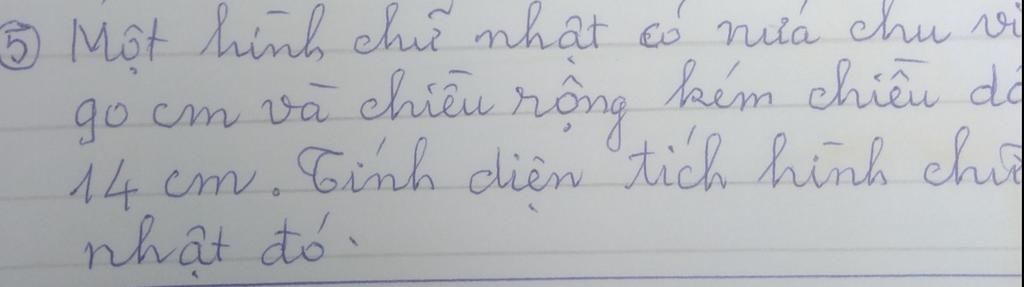 ⑤ Một hình chữ nhật có nửa chu vi
90 cm và chiều rộng kém chiều dà
14 cm. Tính diện tích hình chữ
nhật đó.